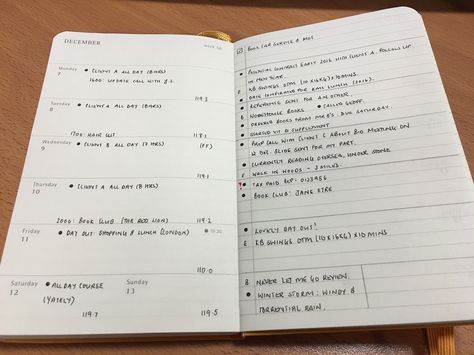 DECEMBER
week 50
Monday
7
● CLIENT A ALL DAY (8HRS)
1600: UPDATE CALL WITH J.S.
119.3
Tuesday
8
● CLIENT A ALL DAY (8HRS)
1700: HAIR CUT
118.1
Wednesday
9
● CLIENT B ALL DAY (7 HRS)
(FF)
119.1
Thursday
10
● CLIENT A ALL DAY (8 HRS)
2000: BOOK CLUB (THE RED LION)
119.2
Friday
11
● DAY OUT SHOPPING & LUNCH (LONDON)
● 10:30
110.0
Saturday
12
● ALL DAY COURSE
(YATELY)
119.7
Sunday
13
119.5
BOOK CAR SERVICE & MOT
● POTENTIAL CONTRACT EARLY 2016 WITH CLIENT A. FOLLOW UP
IN NEW YEAR.
E KB SWINGS OTM (10 X 16KG) X 10MINS.
● DATE CONFIRMED FOR LUNCH (2016).
● REFERENCE SENT FOR
B WOOLHOUSE BOOKS ● CALLED GEOFF.
● ORDERED BOOKS FROM MR B'S. DUE SATURDAY.
● STARTED VIT D SUPPLEMENT
● PREP CALL WITH CLIENT C ABOUT BIG MEETING ON
12 DEC. SLIDE DONE FOR MY PART.
● CURRENTLY READING
E WALK IN WOODS - 3 MILES.
● TAX PAID REF: 0123456
● BOOK CLUB: JANE EYRE
● LOVELY DAY OUT!
E KB SWINGS OTM (10 X 16KG) X 10 MINS
B NEVER LET ME GO REVIEW.
● WINTER STORM: WINDY &
TORRENTIAL RAIN.